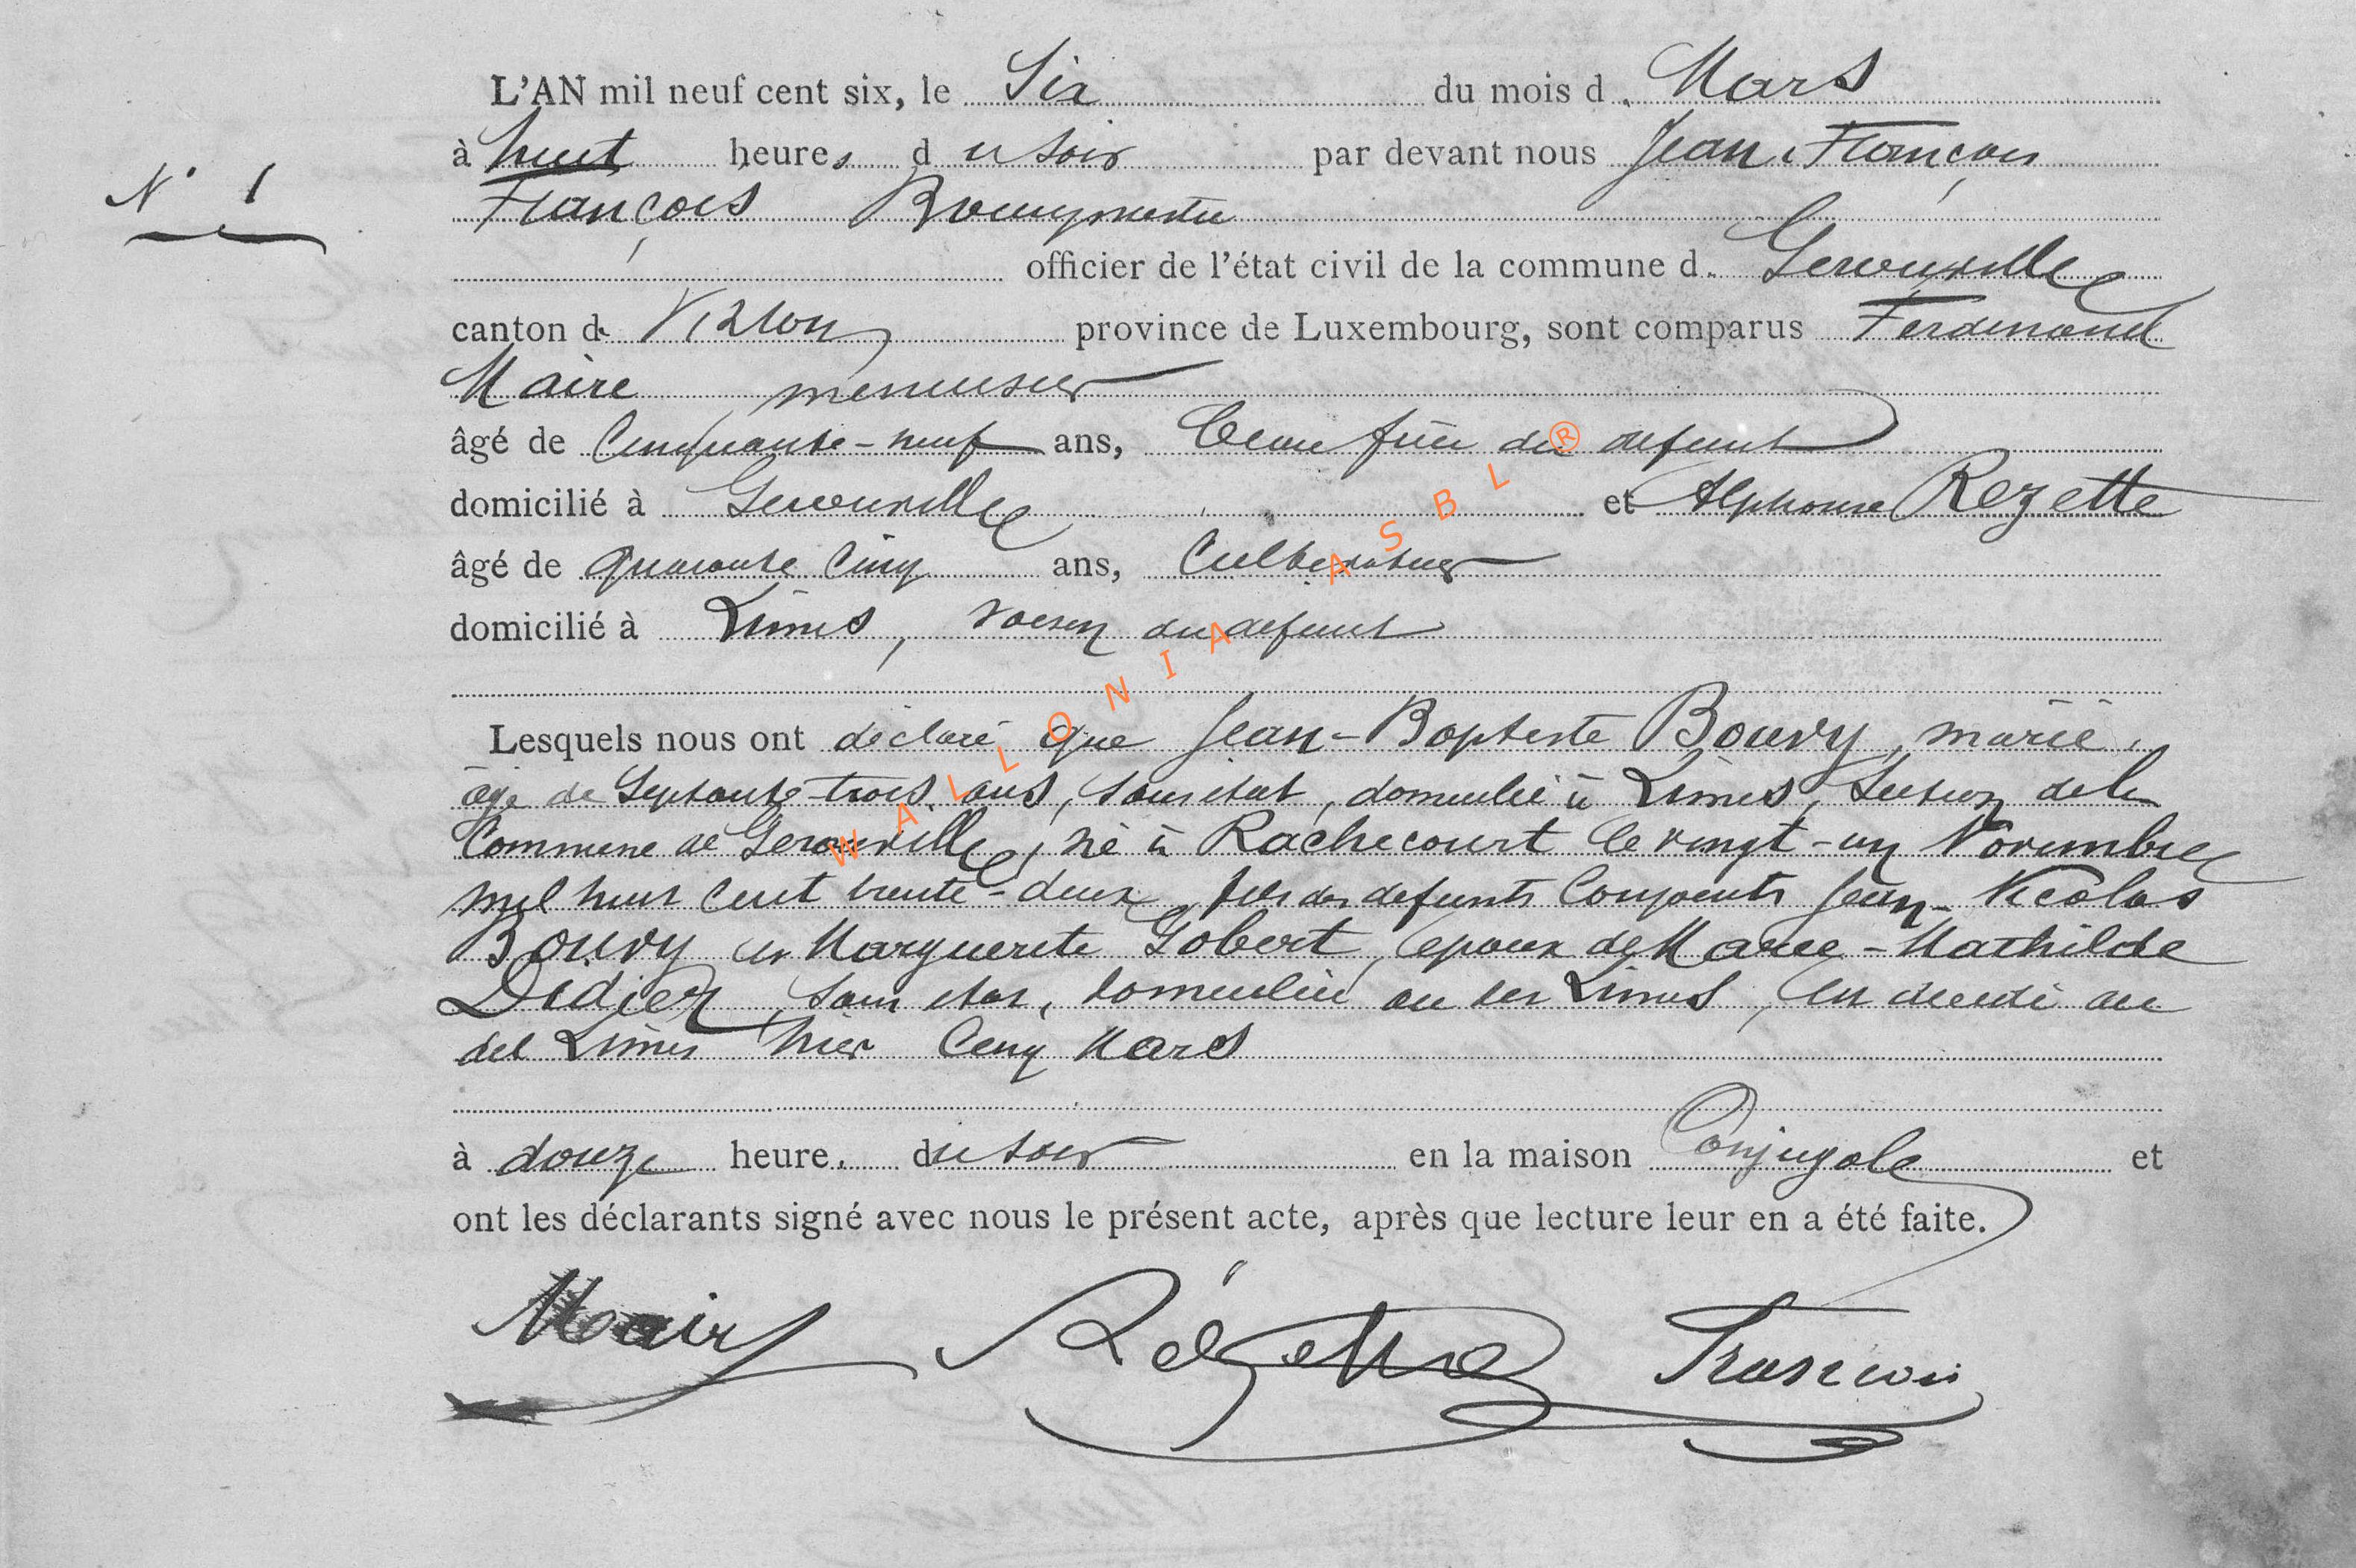 L'AN mil neuf cent six, le Six du mois d. Mars
à huit heures du soir par devant nous Jean François
N° 1
François Bourgmestre
officier de l'état civil de la commune d. Gerouville
canton de Virton province de Luxembourg, sont comparus Ferdinand
Maire menuisier
âgé de Cinquante-neuf ans, beau frère du défunt
domicilié à Gerouville et Alphonse Rezette
âgé de quarante cinq ans, Cultivateur
domicilié à Limes, voisin du défunt
Lesquels nous ont déclaré que Jean-Baptiste Bouvy, marié,
âgé de Septante-trois ans, sans état, domicilié à Limes, Section de la
Commune de Gerouville, né à Rachecourt le vingt-un Novembre
mil huit cent trente-deux, fils des défunts Conjoints Jean-Nicolas
Bouvy et Marguerite Gobert, époux de Marie-Mathilde
Didier, sans état, domiciliée au dit Limes, est décédé au
dit Limes hier Cinq Mars
à douze heure. du soir en la maison Conjugale et
ont les déclarants signé avec nous le présent acte, après que lecture leur en a été faite.
Maire Rézette François
WALLONIA ASBL ®